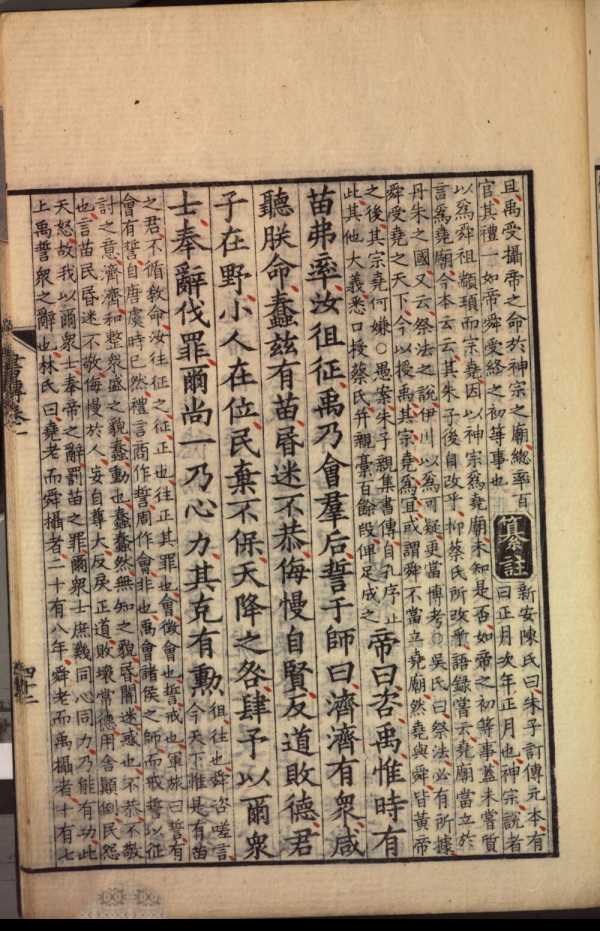 且禹受攝帝之命於神宗之廟總率百
官其禮一如帝舜受終之初等事也
纂註
新安陳氏曰朱子訂傳元本有
曰正月次年正月也神宗説者
以爲舜祖顓頊而宗堯因以神宗爲堯廟未知是否如帝之初等事蓋未嘗質
言爲堯廟今本云云其朱子後自改乎抑蔡氏所改乎語錄嘗云堯廟當立於
丹朱之國又云祭法之説伊川以爲可疑更當博考○吳氏曰祭法必有所據
舜受堯之天下今以授禹其宗堯爲宜或謂舜不當立堯廟然堯與舜皆黃帝
之後其宗堯何嫌○愚案朱子親集書傳自孔序止
此其他大義悉口授蔡氏并親藁百餘段俾足成之
帝曰咨禹惟時有
苗弗率汝徂征禹乃會羣后誓于師曰濟濟有衆咸
聽朕命蠢茲有苗昬迷不恭侮慢自賢反道敗德君
子在野小人在位民棄不保天降之咎肆予以爾衆
士奉辭伐罪爾尚一乃心力其克有勲
徂往也舜咨嗟言
今天下惟是有苗
之君不循教命汝往征之征正也往正其罪也會徵會也誓戒也軍旅曰誓有
會有誓自唐虞時已然禮言商作誓周作會非也禹會諸侯之師而戒誓以征
討之意濟濟和整衆盛之貌蠢動也蠢蠢然無知之貌昬闇迷惑也不恭不敬
也言苗民昬迷不敬侮慢於人妄自尊大反戾正道敗壞常德用舎顛倒民怨
天怒故我以爾衆士奉帝之辭罰苗之罪爾衆士庶幾同心同力乃能有功此
上禹誓衆之辭也林氏曰堯老而舜攝者二十有八年舜老而禹攝者十有七
書傳卷一
四十二